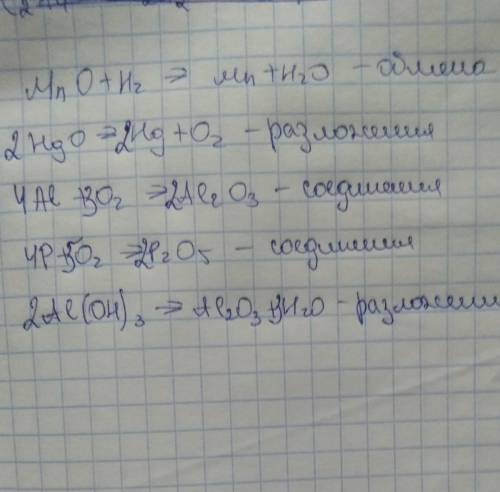 MnO + H₂ → Mn + H₂O – обмена
2HgO → 2Hg + O₂ – разложения
4Al + 3O₂ → 2Al₂O₃ – соединения
4P + 5O₂ → 2P₂O₅ – соединения
2Al(OH)₃ → Al₂O₃ + 3H₂O – разложени